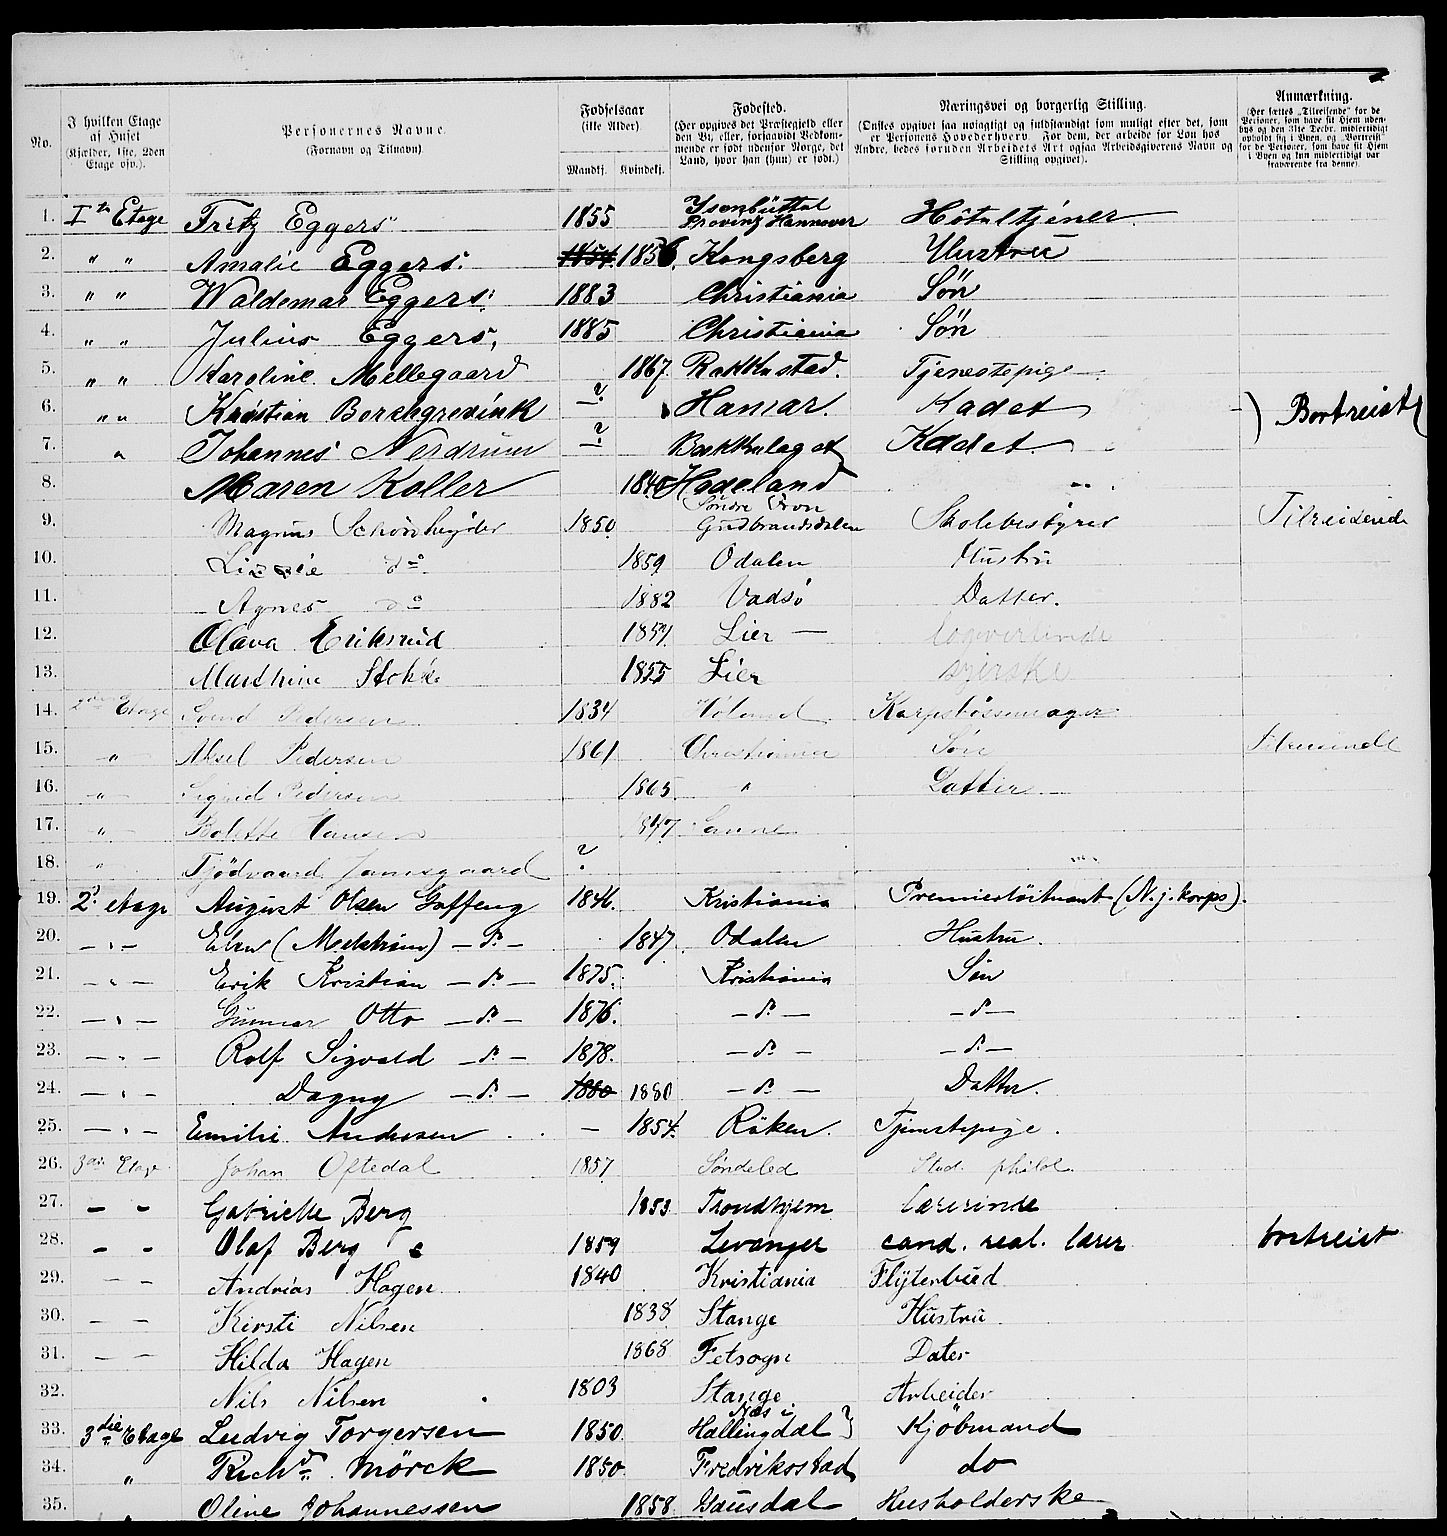 No. | I hvilken Etage af Huset (Kjælder, 1ste, 2den Etage osv.). | Personernes Navne. (Fornavn og Tilnavn) | Fødselsaar (ikke Alder). Mandkj. Kvindekj. | Fødested. (Her opgives det Præstegjeld eller den By, eller, forsaavidt Vedkommende er født udenfor Norge, det Land, hvor han (hun) er født.) | Næringsvei og borgerlig Stilling. (Ønskes opgivet saa nøiagtigt og fuldstændigt som muligt efter det, som er Personens Hovederhverv. For dem, der arbeide for Løn hos Andre, bedes foruden Arbeidets Art ogsaa Arbeidsgiverens Navn og Stilling opgivet). | Anmærkning. (Her sættes „Tilreisende" for de Personer, som have sit Hjem udenbys og den 31te Decbr. midlertidigt opholdt sig i Byen, og „Bortreist" for de Personer, som have sit Hjem i Byen og kun midlertidigt var fraværende fra denne).
1. Iste Etage Fritz Eggers 1855 Isenbüttel Provinz Hannover Hôteltjener
2. " " Amalie Eggers. 1854 1856. Kongsberg Hustru
3. " " Waldemar Eggers. 1883 Christiania Søn
4. " " Julius Eggers, 1885 Christiania Søn
5. " " Karoline Mellegaard 1867 Rakkestad. Tjenestepige
6. " " Kristian Borchgrevink — ? Hamar. Kadet ) Bortreist
7. " Johannes Nerdrum — ? Bækkelaget Kadet.
8. Maren Koller 1840 Hadeland "
9. Magnus Schønheyder 1850 Søndre Fron Gudbrandsdalen Skolebestyrer Tilreisende
10. Lizzie do 1859 Odalen Hustru
11. Agnes do 1882 Vadsø Datter.
12. Olava Eriksrud 1857 Lier — logerende
13. Marthine Stokke 1855 Lier syerske
14. 2den Etage Svend Pedersen 1834 Høland Korpsbøssemager
15. " Aksel Pedersen 1861 Christiania Søn Tilreisende
16. " Sigrid Pedersen 1865 " Datter
17. " Bolette Hansen 1847 Sanne
18. " Tjødvaard ? "
19. 2. etage August Olsen Gaffeng 1846. Kristiania Premierløitnant (N. j. korps).
20. — " — Elen (Melstrøm) — do — 1847 Odalen Hustru.
21. — " — Erik Kristian — do — 1875. Kristiania Søn
22. — " — Gunnar Otto — do — 1876. — do — — do —
23. — " — Rolf Sigvald — do — 1878. — do — — do —
24. — " — Dagny — do — 1880 1880 — do — Datter.
25. — " — Emilie Andersen — 1854. Röken. Tjenestepige.
26. 3die Etage Johan Oftedal 1857 Søndeled Stud. philol.
27. — — Gabrielle Berg 1853 Trondhjem lærerinde
28. — — Olaf Berg 1859 Levanger cand. real. lærer bortreist
29. — — Andrias Hagen. 1840 Kristiania Flytterbud
30. — — Kirsti Nilsen 1838 Stange Hustru
31. — — Hilda Hagen 1868 Fetsogn Dater
32. Nils Nilsen 1803 Stange Arbeider
33. 3die Etage Ludvig Torgersen 1850. Næs i Hallingdal } Kjöbmand
34. " Richd. Mörck 1850 Fredriksstad do
35. " Oline Johannessen 1858 Gausdal Husholderske